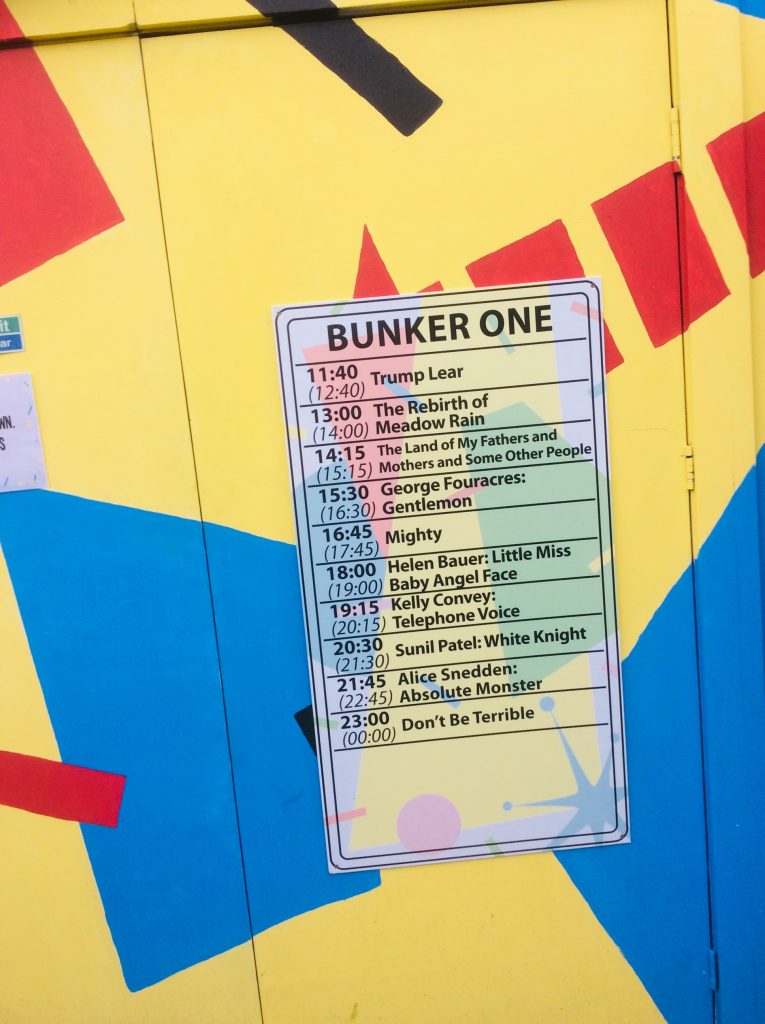 BUNKER ONE
11:40 Trump Lear
(12:40)
13:00 The Rebirth of
(14:00) Meadow Rain
14:15 The Land of My Fathers and
(15:15) Mothers and Some Other People
15:30 George Fouracres:
(16:30) Gentlemon
16:45 Mighty
(17:45)
18:00 Helen Bauer: Little Miss
(19:00) Baby Angel Face
19:15 Kelly Convey:
(20:15) Telephone Voice
20:30 Sunil Patel: White Knight
(21:30)
21:45 Alice Snedden:
(22:45) Absolute Monster
23:00 Don't Be Terrible
(00:00)